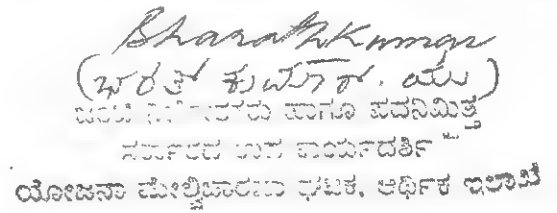 Bharathkumar
(ಭರತ್ ಕುಮಾರ್. ಯು)
ಜಂಟಿ ನಿರ್ದೇಶಕರು ಹಾಗೂ ಪದನಿಮಿತ್ತ
ಸರ್ಕಾರದ ಉಪ ಕಾರ್ಯದರ್ಶಿ
ಯೋಜನಾ ಮೇಲ್ವಿಚಾರಣಾ ಘಟಕ, ಆರ್ಥಿಕ ಇಲಾಖೆ